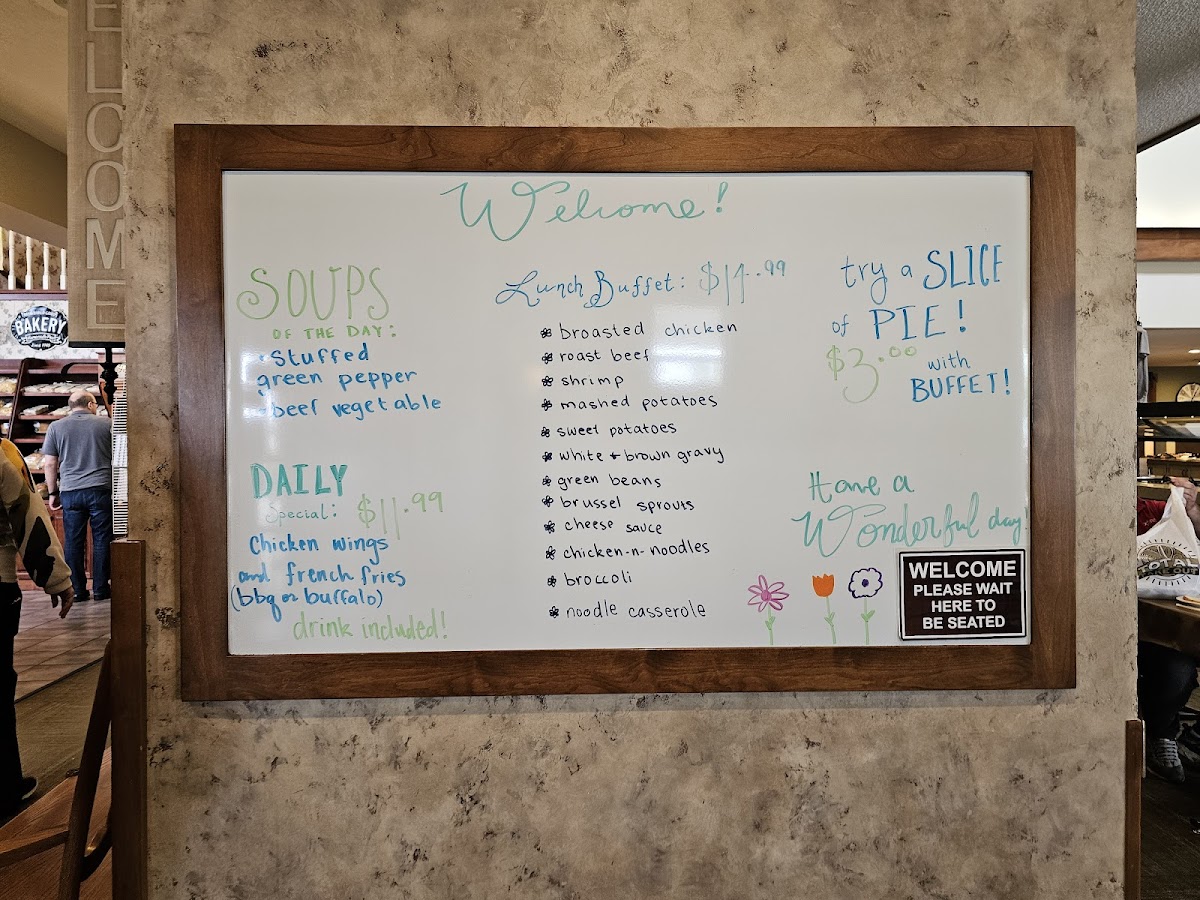 WELCOME
BAKERY
Welcome!
SOUPS
OF THE DAY:
• Stuffed
green pepper
• beef vegetable
DAILY
Special: $11.99
Chicken wings
and french fries
(bbq or buffalo)
drink included!
Lunch Buffet: $14.99
broasted chicken
roast beef
shrimp
mashed potatoes
sweet potatoes
white + brown gravy
green beans
brussel sprouts
cheese sauce
chicken-n-noodles
broccoli
noodle casserole
try a SLICE
of PIE!
$3.00 with
BUFFET!
Have a
Wonderful day!
WELCOME
PLEASE WAIT
HERE TO
BE SEATED